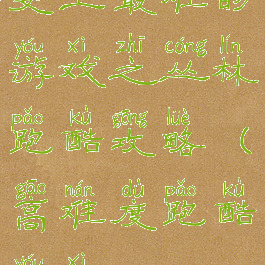 史上最难的
yóu xì zhī cóng lín
游戏之丛林
pǎo kù gōng lüè
跑酷攻略（
gāo nán dù pǎo kù
高难度跑酷
yóu xì